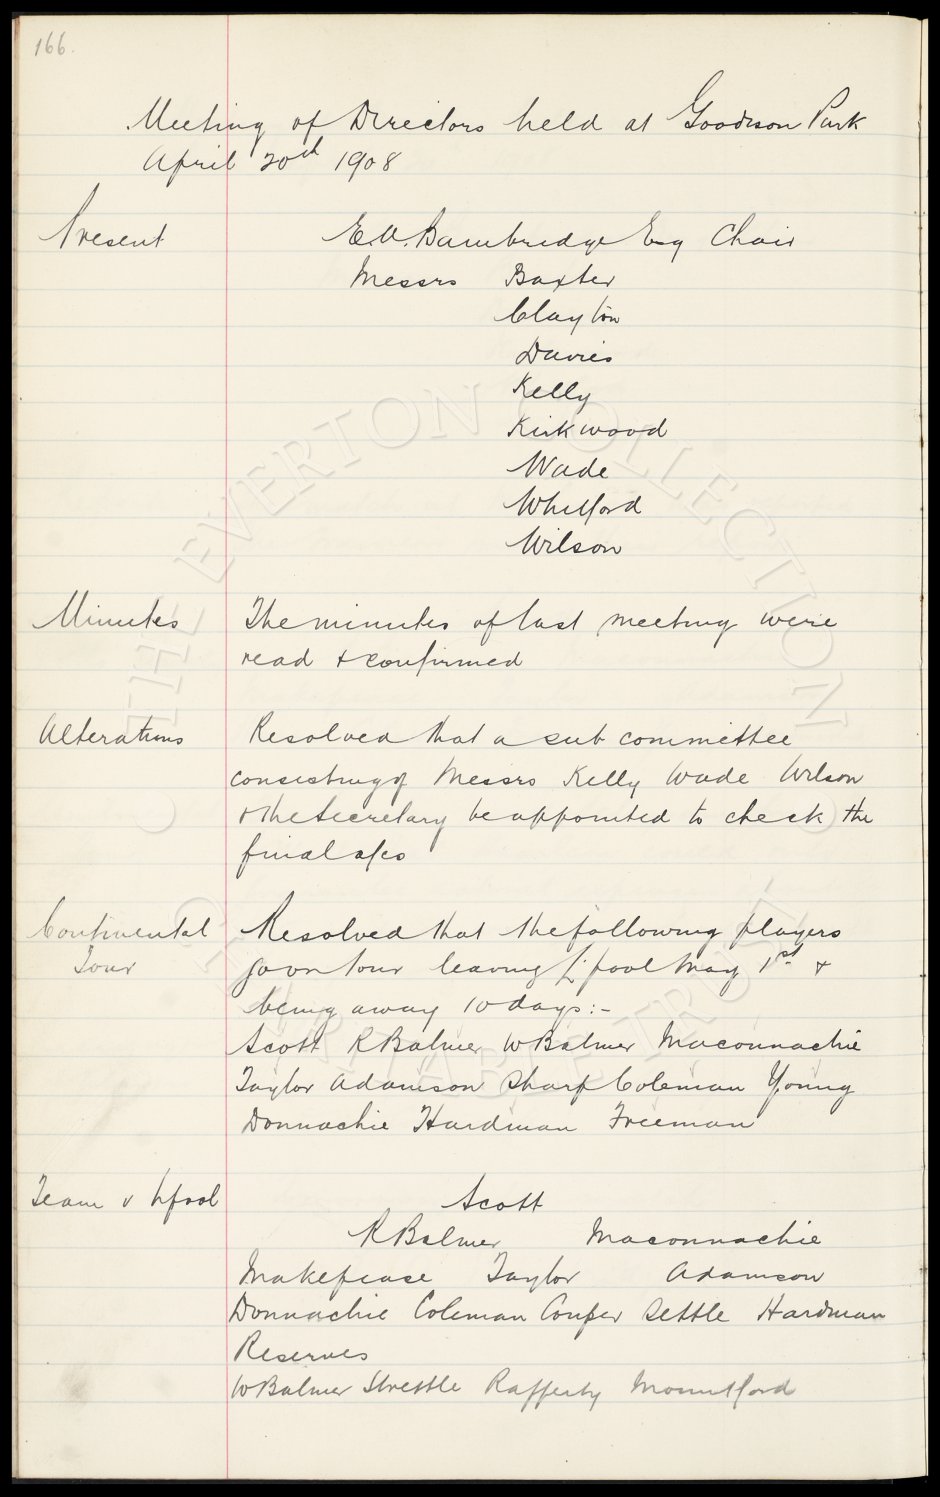 166.
Meeting of Directors held at Goodison Park
April 20th 1908
Present
E.A. Bainbridge Esq Chair
Messrs Baxter
Clayton
Davies
Kelly
Kirkwood
Wade
Whitford
Wilson
Minutes The minutes of last meeting were
read & confirmed
Alterations Resolved that a sub committee
consisting of Messrs Kelly Wade Wilson
& the Secretary be appointed to check the
final a/cs
Continental Resolved that the following players
Tour go on tour leaving L'pool May 1st &
being away 10 days:-
Scott R Balmer W Balmer Maconnachie
Taylor Adamson Sharp Coleman Young
Donnachie Hardman Freeman
Team v Lpool Scott
R Balmer Maconnachie
Makepeace Taylor Adamson
Donnachie Coleman Couper Settle Hardman
Reserves
W Balmer Strettle Rafferty Mountford
THE EVERTON COLLECTION
CHARITABLE TRUST